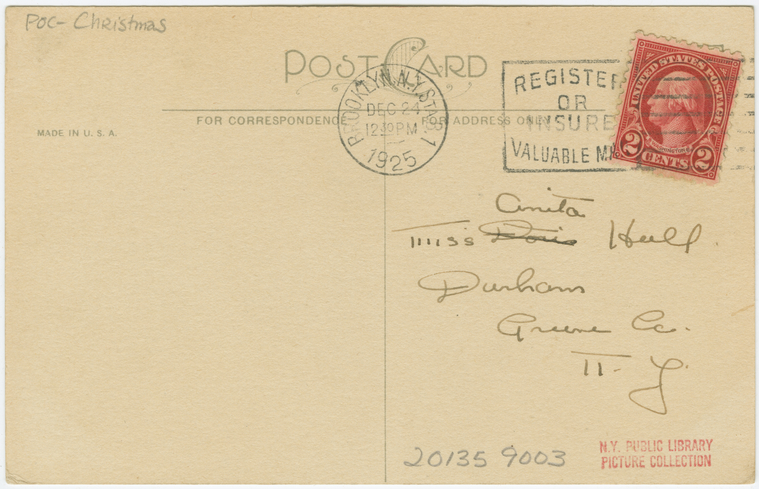 POC - Christmas
POST CARD
BROOKLYN, N.Y. STA. 1
DEC 24
12 30 PM
1925
REGISTER
OR
INSURE
VALUABLE M
UNITED STATES POSTAGE
WASHINGTON
2 CENTS 2
FOR CORRESPONDENCE
FOR ADDRESS ONLY
MADE IN U. S. A.
Anita
Miss Doris Hull.
Durham
Greene Co.
N. Y.
20135 9003
N.Y. PUBLIC LIBRARY
PICTURE COLLECTION